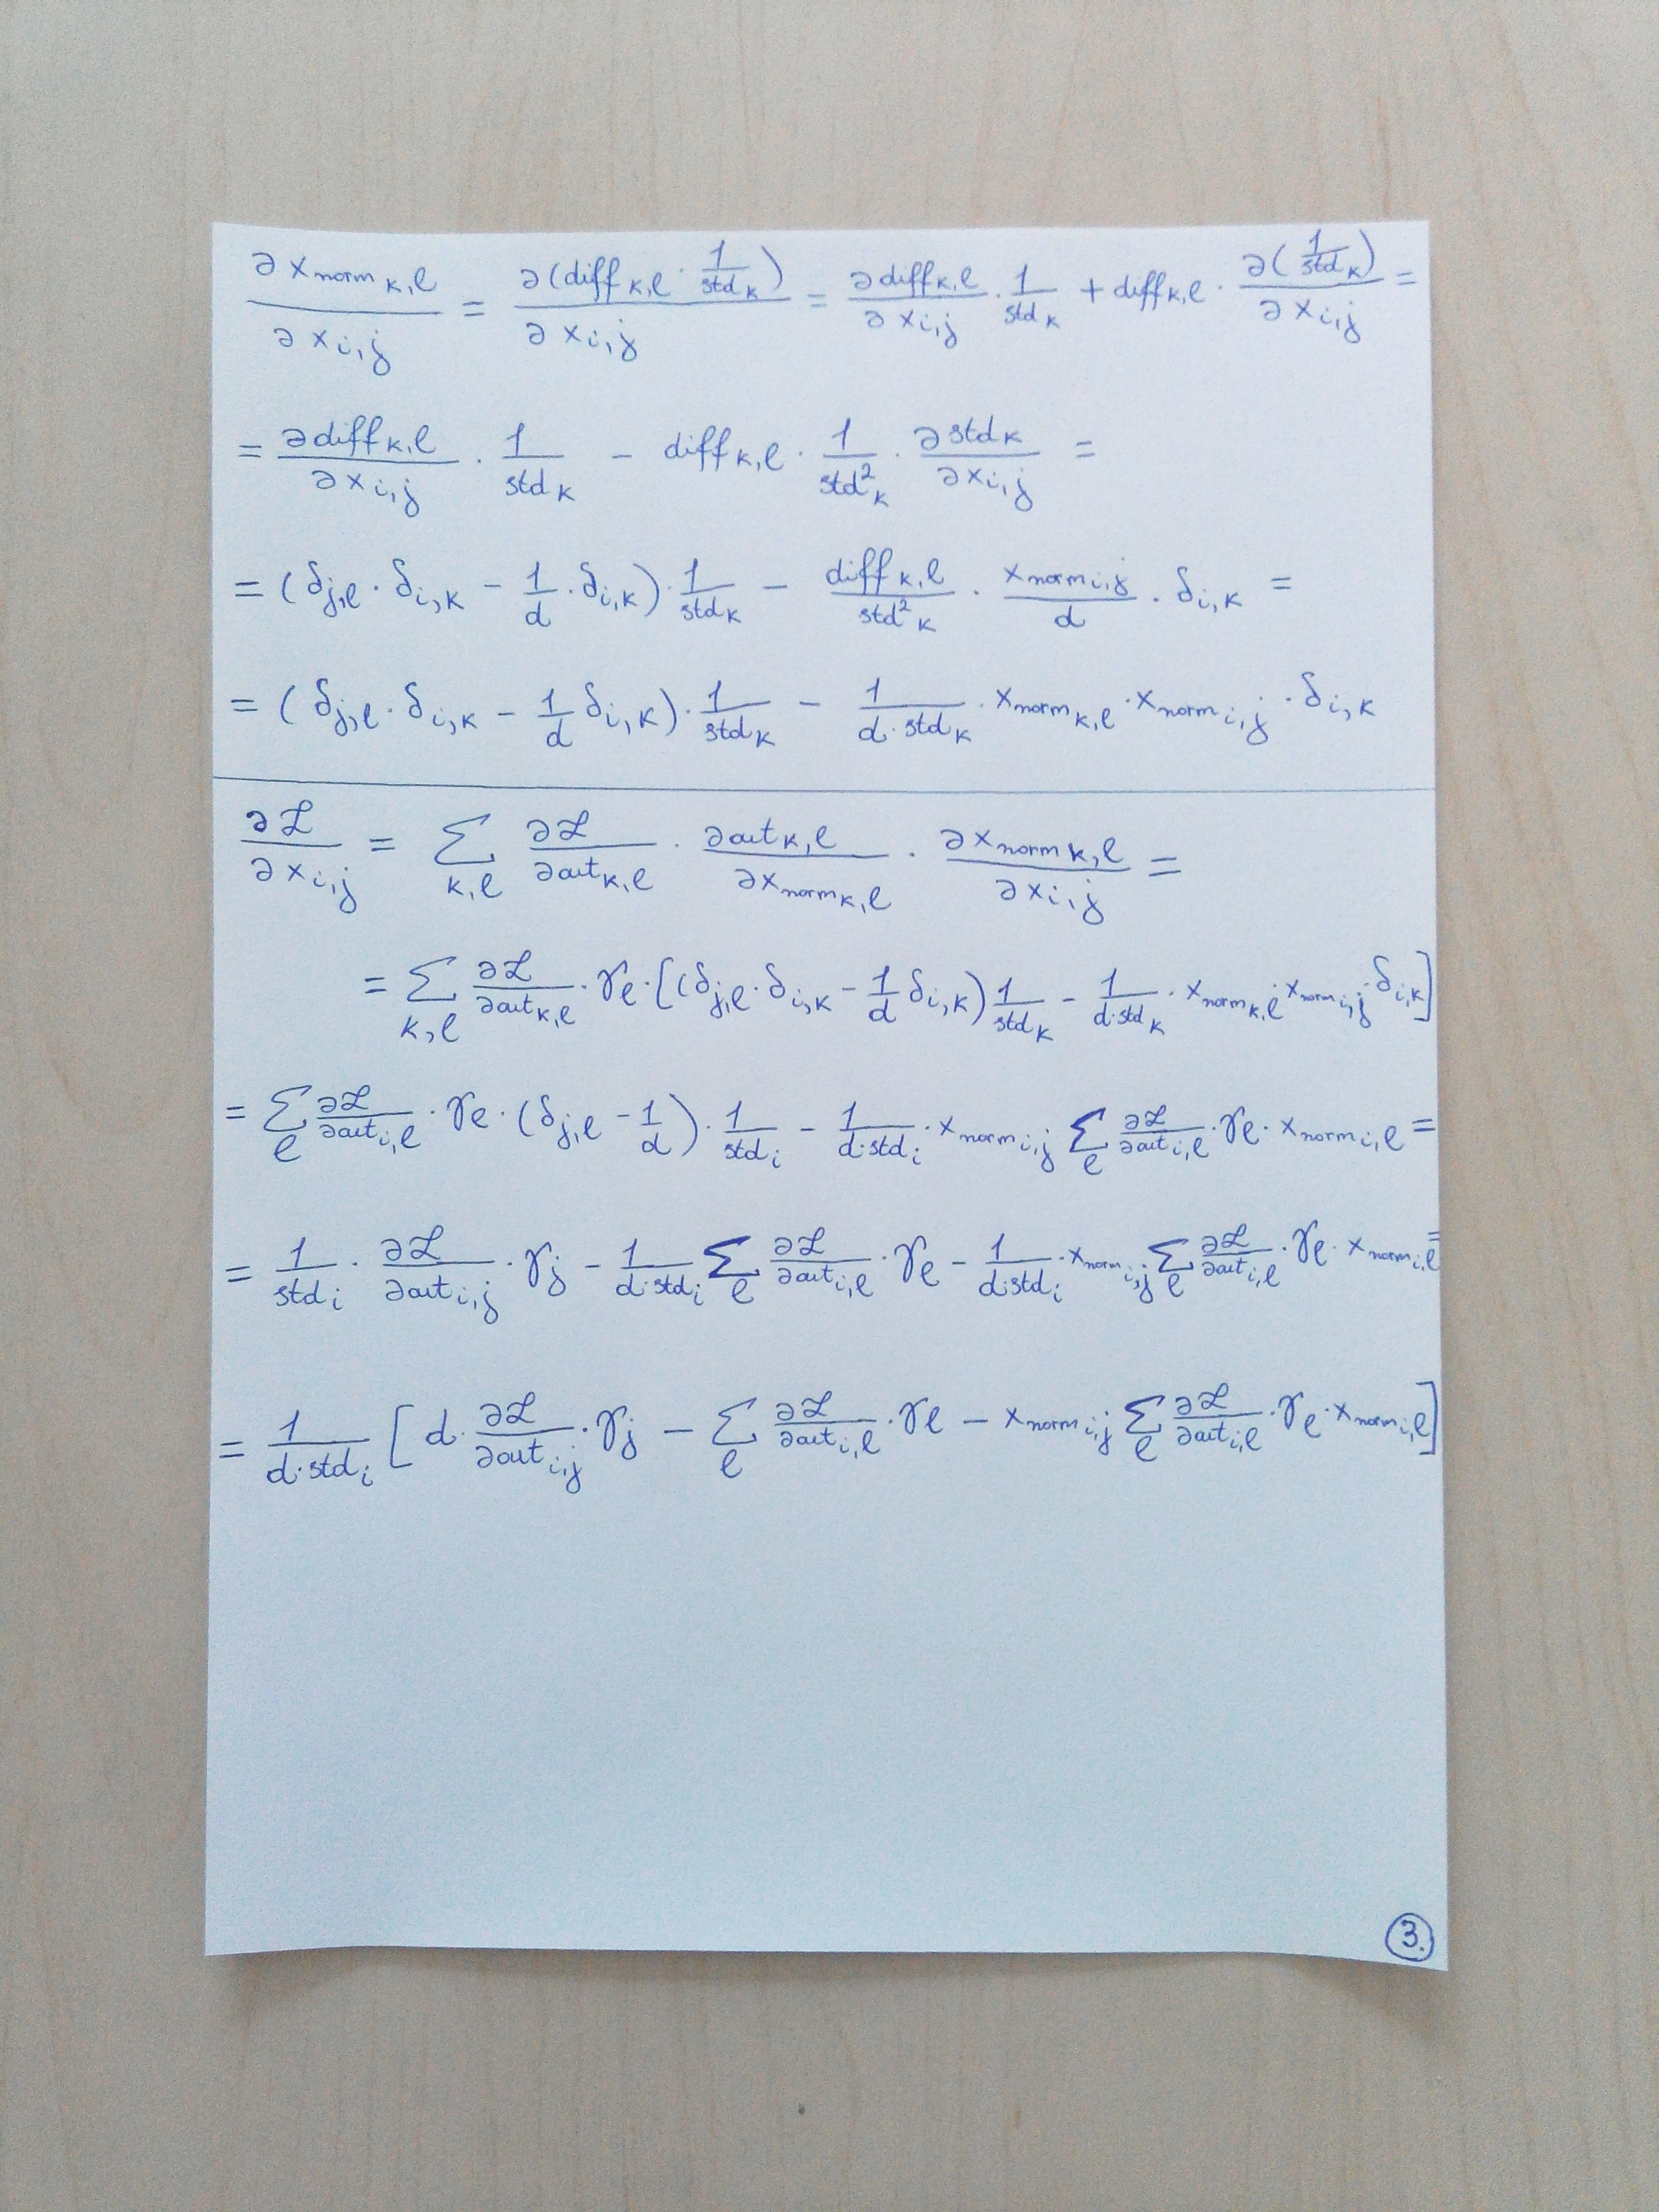 ∂x_{norm k,l} / ∂x_{i,j} = ∂(diff_{k,l} · 1/std_k) / ∂x_{i,j} = ∂diff_{k,l}/∂x_{i,j} · 1/std_k + diff_{k,l} · ∂(1/std_k)/∂x_{i,j} =
= ∂diff_{k,l}/∂x_{i,j} · 1/std_k − diff_{k,l} · 1/std²_k · ∂std_k/∂x_{i,j} =
= (δ_{j,l} · δ_{i,k} − 1/d · δ_{i,k}) · 1/std_k − diff_{k,l}/std²_k · x_{norm i,j}/d · δ_{i,k} =
= (δ_{j,l} · δ_{i,k} − 1/d δ_{i,k}) · 1/std_k − 1/(d·std_k) · x_{norm k,l} · x_{norm i,j} · δ_{i,k}
∂ℒ/∂x_{i,j} = Σ_{k,l} ∂ℒ/∂out_{k,l} · ∂out_{k,l}/∂x_{norm k,l} · ∂x_{norm k,l}/∂x_{i,j} =
= Σ_{k,l} ∂ℒ/∂out_{k,l} · γ_l · [(δ_{j,l} · δ_{i,k} − 1/d δ_{i,k}) 1/std_k − 1/(d·std_k) · x_{norm k,l} · x_{norm i,j} · δ_{i,k}]
= Σ_l ∂ℒ/∂out_{i,l} · γ_l · (δ_{j,l} − 1/d) · 1/std_i − 1/(d·std_i) · x_{norm i,j} Σ_l ∂ℒ/∂out_{i,l} · γ_l · x_{norm i,l} =
= 1/std_i · ∂ℒ/∂out_{i,j} · γ_j − 1/(d·std_i) Σ_l ∂ℒ/∂out_{i,l} · γ_l − 1/(d·std_i) · x_{norm i,j} Σ_l ∂ℒ/∂out_{i,l} · γ_l · x_{norm i,l} =
= 1/(d·std_i) [d · ∂ℒ/∂out_{i,j} · γ_j − Σ_l ∂ℒ/∂out_{i,l} · γ_l − x_{norm i,j} Σ_l ∂ℒ/∂out_{i,l} · γ_l · x_{norm i,l}]
3.